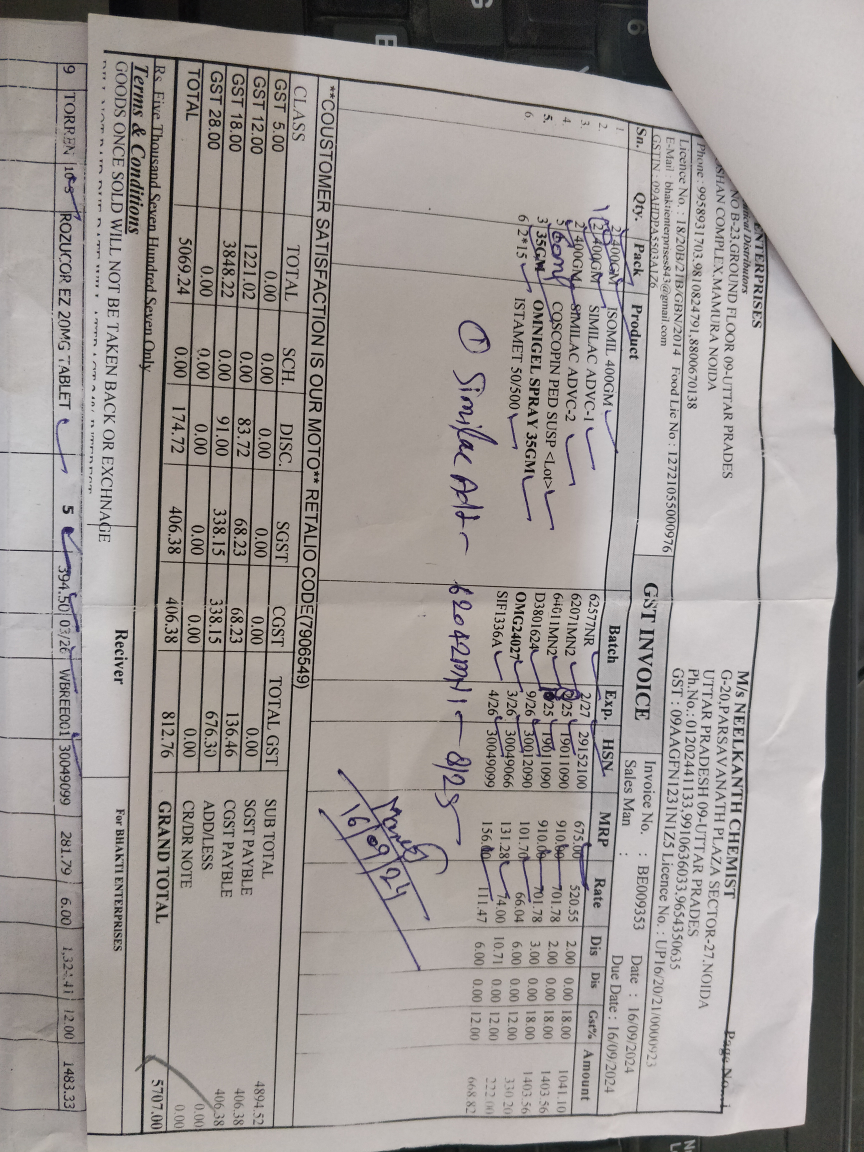 ENTERPRISES
NO B-23.GROUND FLOOR 09-UTTAR PRADES
SHAN COMPLEX.MAMURA NOIDA
Phone : 9958931703.9810824791,8800670138
Licence No. : 18/20B/21B/GBN/2014 Food Lic No : 12721055000976
E-Mail : bhaktienterprises843@gmail.com
GSTIN : 09AHDPA5503A1Z6
Page No...:1
M/s NEELKANTH CHEMIST
G-20,PARSAVANATH PLAZA SECTOR-27.NOIDA
UTTAR PRADESH 09-UTTAR PRADES
Ph.No.: 01202441133,9910636033,9654350635
GST : 09AAGFN1231N1Z5 Licence No. : UP16/20/21/0000923
GST INVOICE
Invoice No. : BE009353 Date : 16/09/2024
Sales Man : Due Date : 16/09/2024
Sn. Qty. Pack Product Batch Exp. HSN MRP Rate Dis Dis Gst% Amount
1. 2 400GM ISOMIL 400GM 62577NR 2/27 29152100 675.00 520.55 2.00 0.00 18.00 1041.10
2. 2 400GM SIMILAC ADVC-1 62071MN2 /25 19011090 910.00 701.78 2.00 0.00 18.00 1403.56
3. 2 400GM SIMILAC ADVC-2 64011MN2 /25 19011090 910.00 701.78 3.00 0.00 18.00 1403.56
4. 5 60ml COSCOPIN PED SUSP <Lot> D3801624 9/26 30012090 101.70 66.04 6.00 0.00 12.00 330.20
5. 3 35GM OMNIGEL SPRAY 35GM OMG24027 3/26 30049066 131.28 74.00 10.71 0.00 12.00 222.00
6. 6 2*15 ISTAMET 50/500 SIF1336A 4/26 30049099 156.00 111.47 6.00 0.00 12.00 668.82
① Similac Adv - 62042MN1 - 8/25
16/09/24
**COUSTOMER SATISFACTION IS OUR MOTO** RETALIO CODE(7906549)
CLASS TOTAL SCH. DISC. SGST CGST TOTAL GST
GST 5.00 0.00 0.00 0.00 0.00 0.00 0.00
GST 12.00 1221.02 0.00 83.72 68.23 68.23 136.46
GST 18.00 3848.22 0.00 91.00 338.15 338.15 676.30
GST 28.00 0.00 0.00 0.00 0.00 0.00 0.00
TOTAL 5069.24 0.00 174.72 406.38 406.38 812.76
SUB TOTAL 4894.52
SGST PAYBLE 406.38
CGST PAYBLE 406.38
ADD/LESS 0.00
CR/DR NOTE 0.00
GRAND TOTAL 5707.00
Rs. Five Thousand Seven Hundred Seven Only
Terms & Conditions
GOODS ONCE SOLD WILL NOT BE TAKEN BACK OR EXCHNAGE
Reciver
For BHAKTI ENTERPRISES
9 TORREN 10*5 ROZUCOR EZ 20MG TABLET 5 394.50 03/26 WBREE001 30049099 281.79 6.00 12.00 1483.33